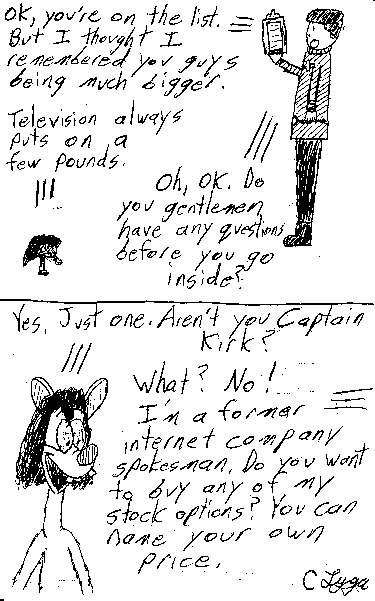 OK, you're on the list.
But I thought I
remembered you guys
being much bigger.
Television always
puts on a
few pounds.
Oh, OK. Do
you gentlemen
have any questions
before you go
inside?
Yes, Just one. Aren't you Captain
Kirk?
What? No!
I'm a former
internet company
spokesman. Do you want
to buy any of my
stock options? You can
name your own
price.
C Lyga